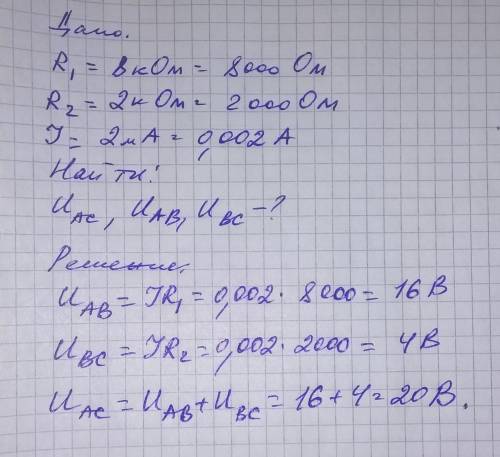 Дано.
R₁ = 8 кОм = 8000 Ом
R₂ = 2 кОм = 2000 Ом
J = 2мА = 0,002 А
Найти:
U_AC, U_AB, U_BC – ?
Решение.
U_AB = JR₁ = 0,002 · 8000 = 16 В
U_BC = JR₂ = 0,002 · 2000 = 4В
U_AC = U_AB + U_BC = 16 + 4 = 20 В.